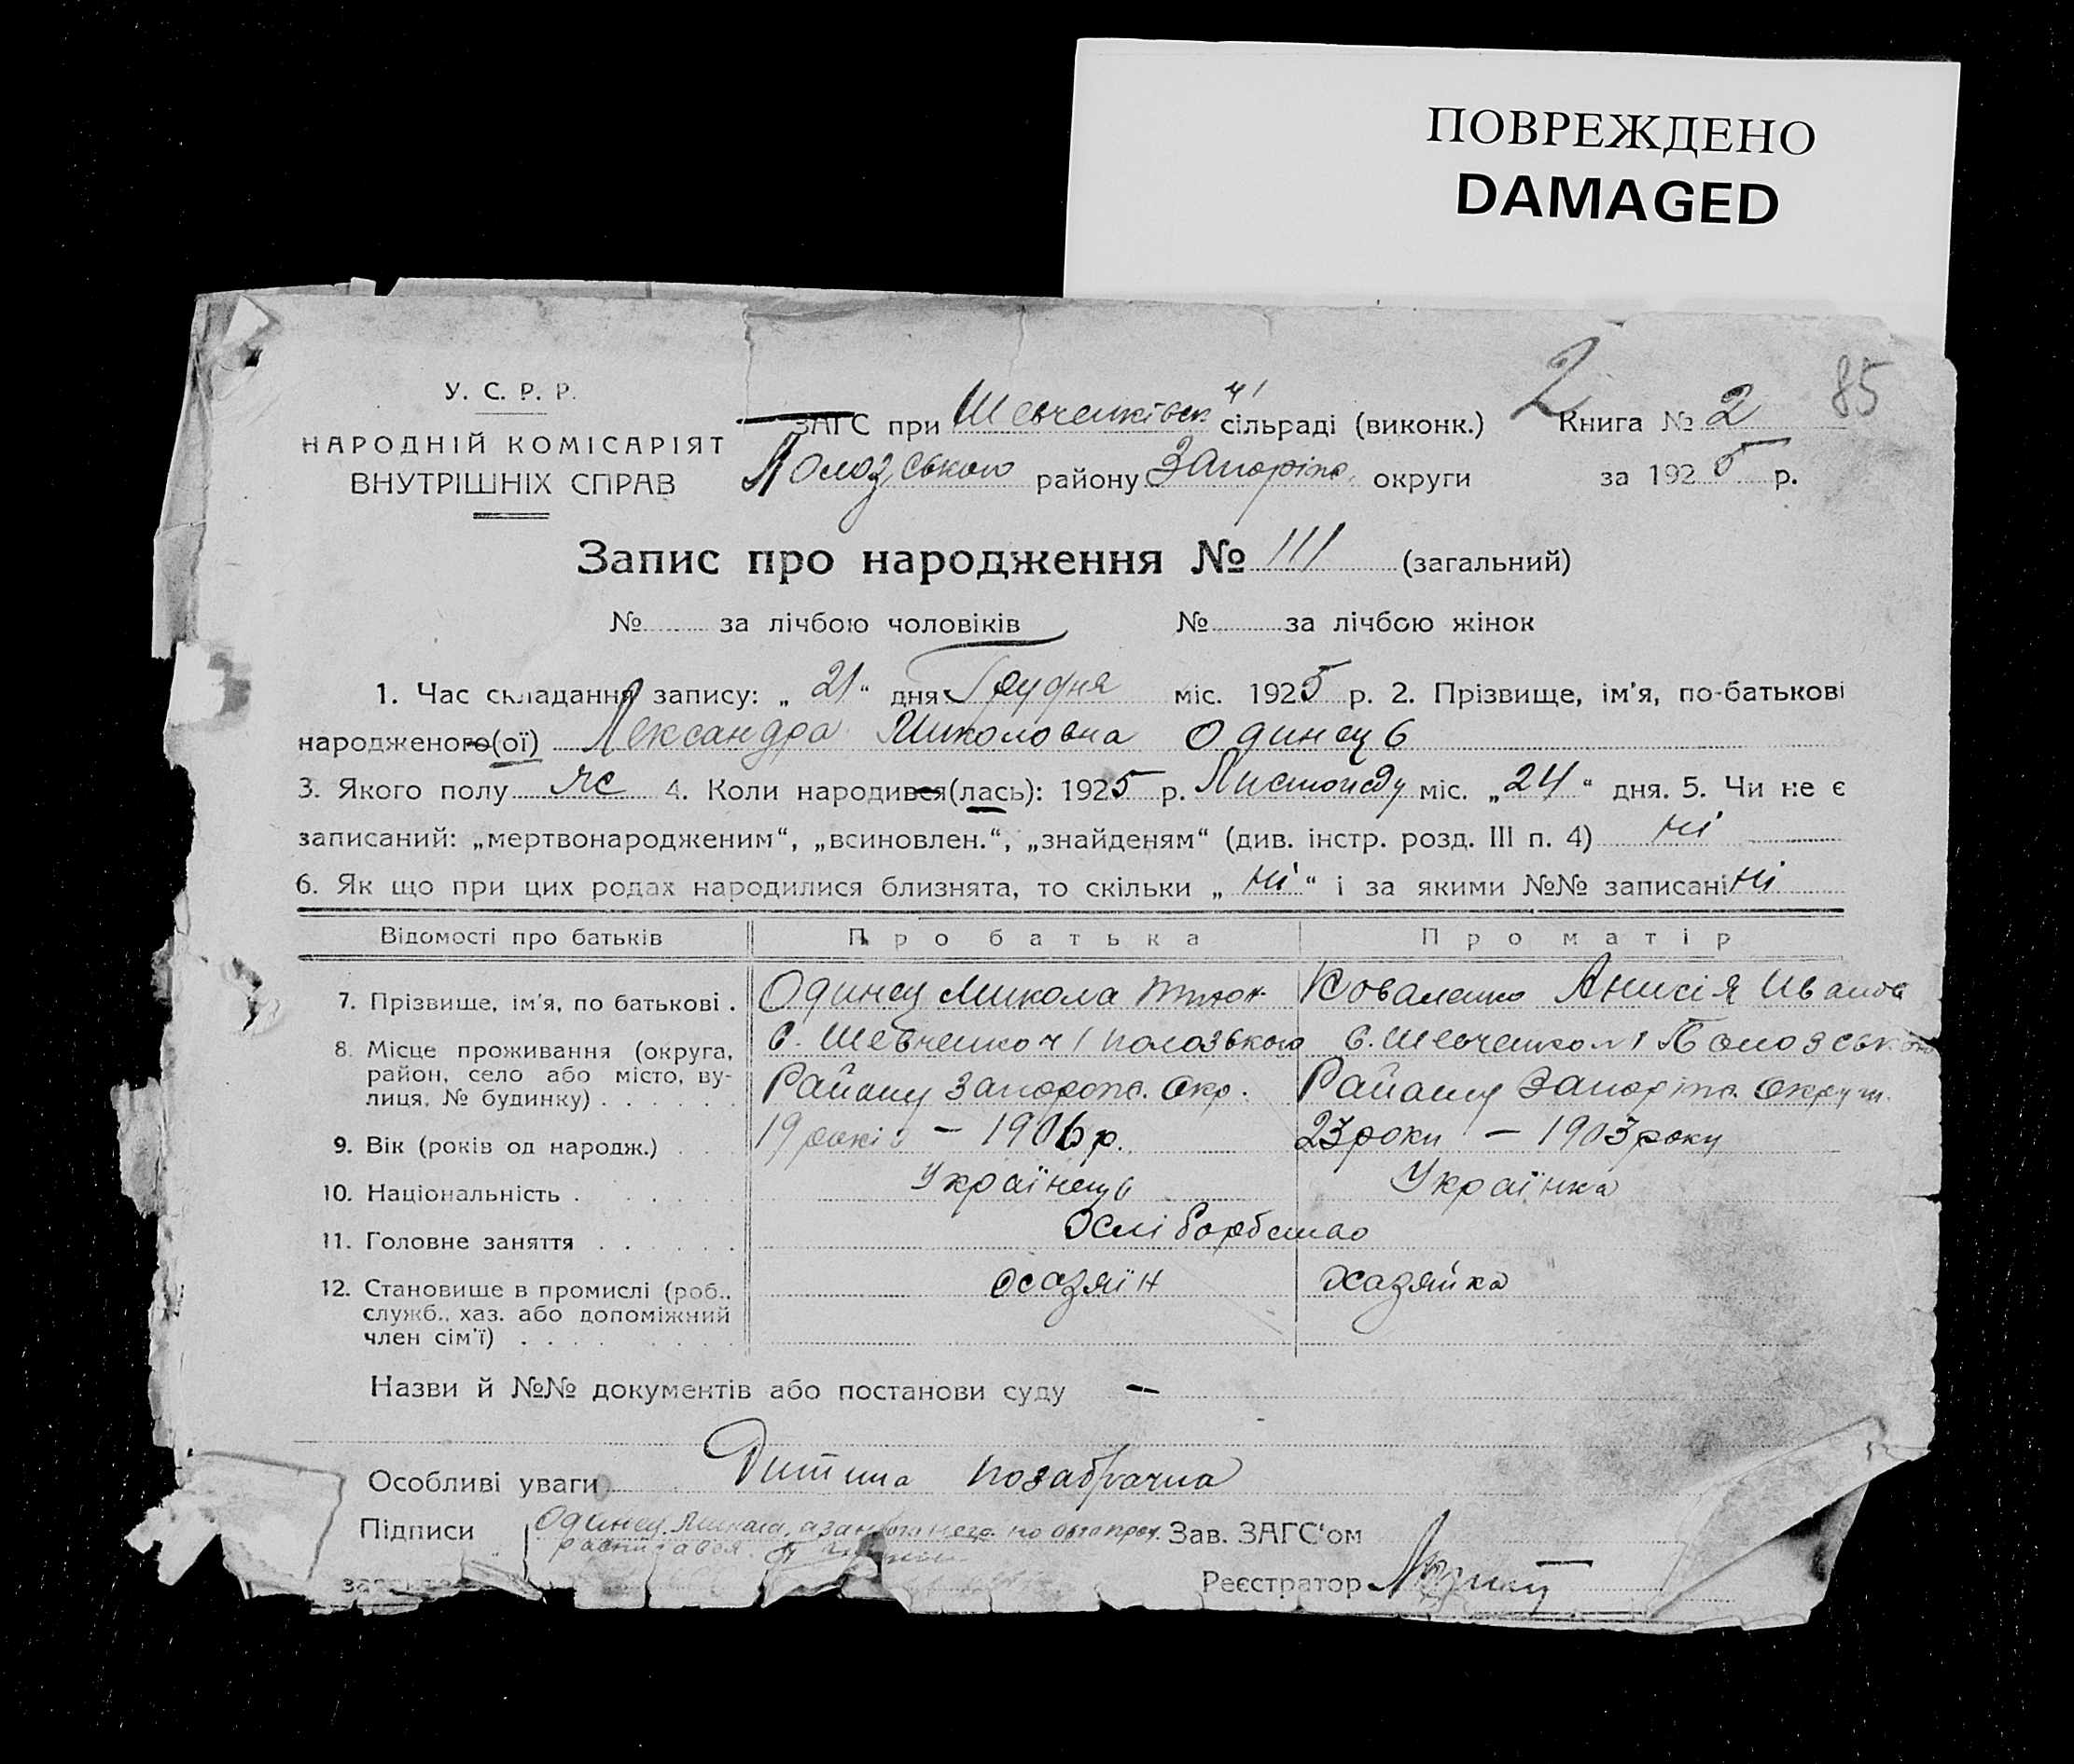 ПОВРЕЖДЕНО
DAMAGED
2 85
У. С. Р. Р.
НАРОДНІЙ КОМІСАРІЯТ
ВНУТРІШНІХ СПРАВ
ЗАГС при Шевченківськ ч 1 сільраді (виконк.) Книга № 2
Пологзського району Запоріж. округи за 1925 р.
Запис про народження № 111 (загальний)
№ за лічбою чоловіків № за лічбою жінок
1. Час складання запису: „ 21 “ дня Грудня міс. 1925 р. 2. Прізвище, ім'я, по-батькові
народженого(ої) Лександра Миколовна Одинець
3. Якого полу ж 4. Коли народився(лась): 1925 р. Листопаду міс. „ 24 “ дня. 5. Чи не є
записаний: „мертвонародженим“, „всиновлен.“, „знайденям“ (див. інстр. розд. III п. 4) ні
6. Як що при цих родах народилися близнята, то скільки „ ні “ і за якими №№ записані ні
Відомості про батьків Про батька Про матір
7. Прізвище, ім'я, по батькові . Одинец Микола Коваленко Анисія Иванов
8. Місце проживання (округа, с. Шевченко ч 1 Полозького с. Шевченко № 1
район, село або місто, ву- Району Запорож. Окр. Району Запоріж. Округи.
лиця, № будинку)
9. Вік (років од народж.) 19 років – 1906 р. 23 роки – 1903 року
10. Національність . Українець Українка
11. Головне заняття Хліборобство
12. Становище в промислі (роб., хазяїн хазяйка
служб., хаз. або допоміжний
член сім'ї)
Назви й №№ документів або постанови суду –
Особливі уваги Дитина позабрачна
Підписи Одинец а за него по его прос. Зав. ЗАГС'ом
расписався
Реєстратор